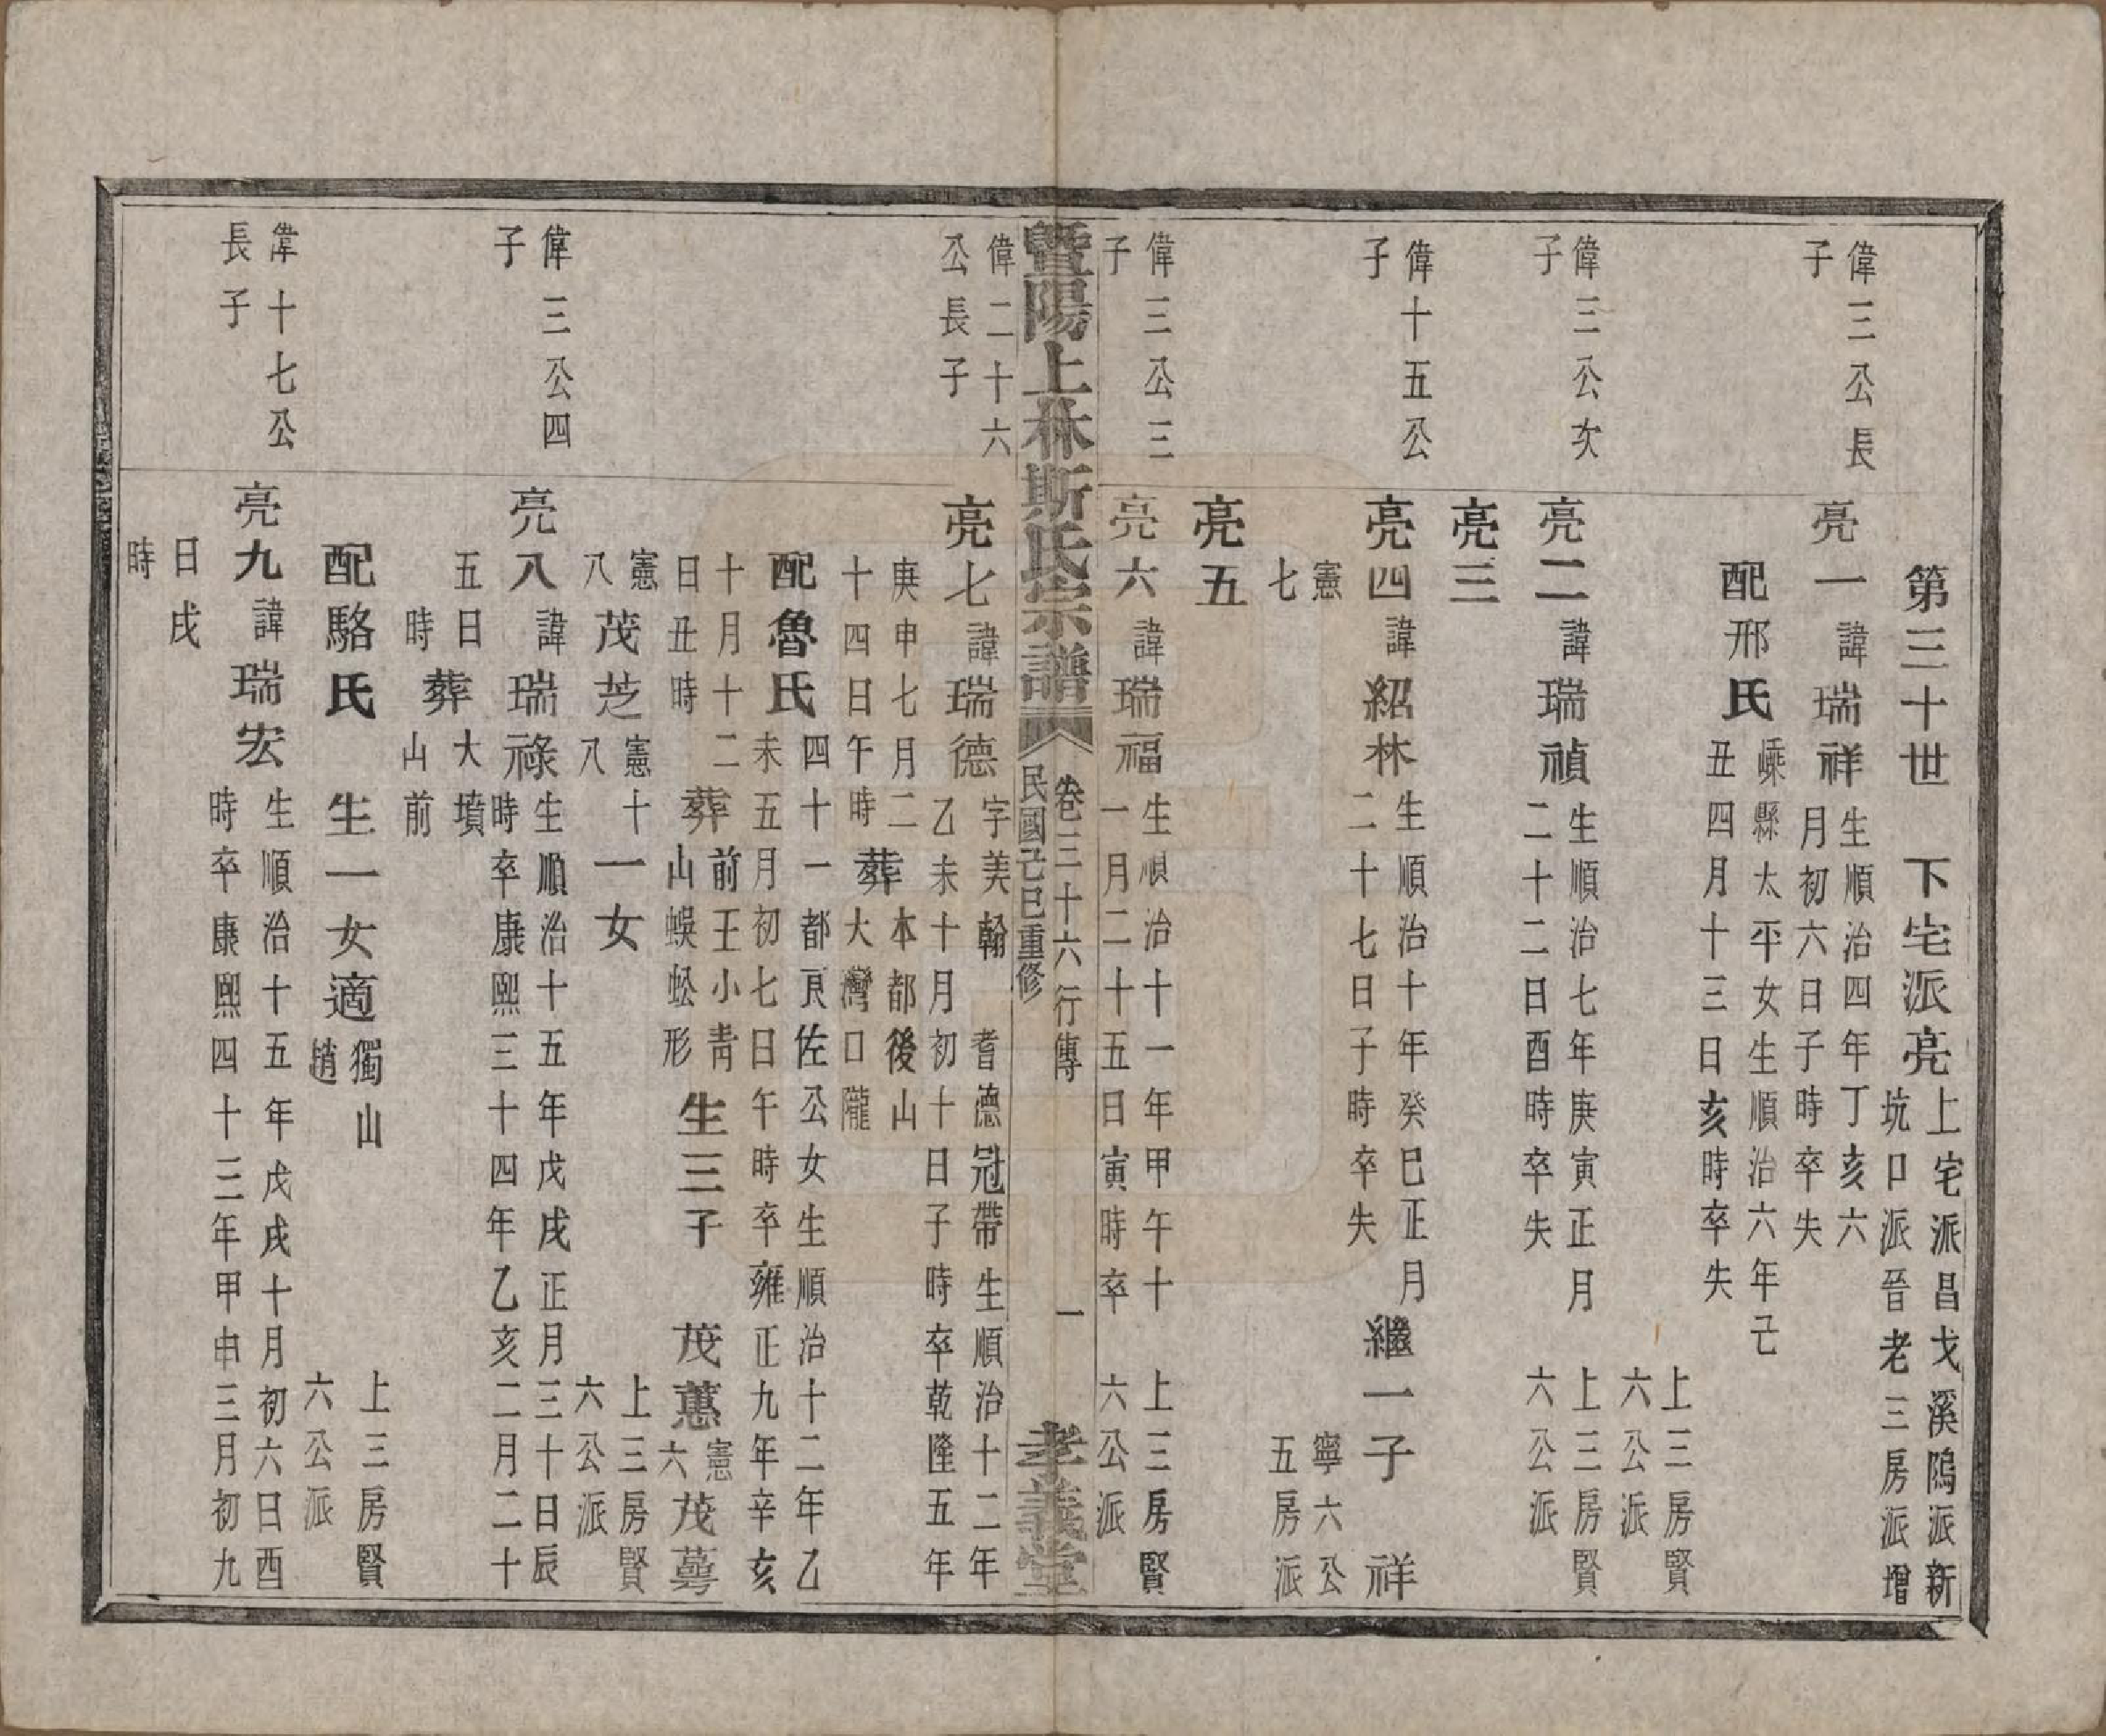 第三十世　下宅派亮
上宅派昌戈溪鴻派新
坑口派晉老三房派增
偉三公長
子
亮一諱瑞祥
生順治四年丁亥六
月初六日子時卒失
配邢氏
嵊縣太平女生順治六年己
丑四月十三日亥時卒失
上三房賢
六公派
偉三公次
子
亮二諱瑞禎
生順治七年庚寅正月
二十二日酉時卒失
上三房賢
六公派
亮三
偉十五公
子
亮四諱紹林
生順治十年癸巳正月
二十七日子時卒失
繼一子　祥
憲
七
寧六公
五房派
亮五
偉三公三
子
亮六諱瑞福
生順治十一年甲午十
一月二十五日寅時卒
上三房賢
六公派
暨陽上林斯氏宗譜
卷三十六行傳　一
民國己巳重修
孝義堂
偉二十六
公長子
亮七諱瑞德
字美翰　耆德冠帶生順治十二年
乙未十月初十日子時卒乾隆五年
庚申七月二
十四日午時
葬
本都後山
大灣口隴
配魯氏
四十一都頁佐公女生順治十二年乙
未五月初七日午時卒雍正九年辛亥
十月十二
日丑時
葬
前王小靑
山蜈蚣形
生三子　茂蕙
憲
六
茂蕚
憲
八
茂芝
憲十
八
一女
上三房賢
六公派
偉三公四
子
亮八諱瑞祿
生順治十五年戊戌正月三十日辰
時卒康熙三十四年乙亥二月二十
五日
時
葬
大墳
山前
配駱氏　生一女適
獨山
趙
上三房賢
六公派
偉十七公
長子
亮九諱瑞宏
生順治十五年戊戌十月初六日酉
時卒康熙四十三年甲申三月初九
日戌
時